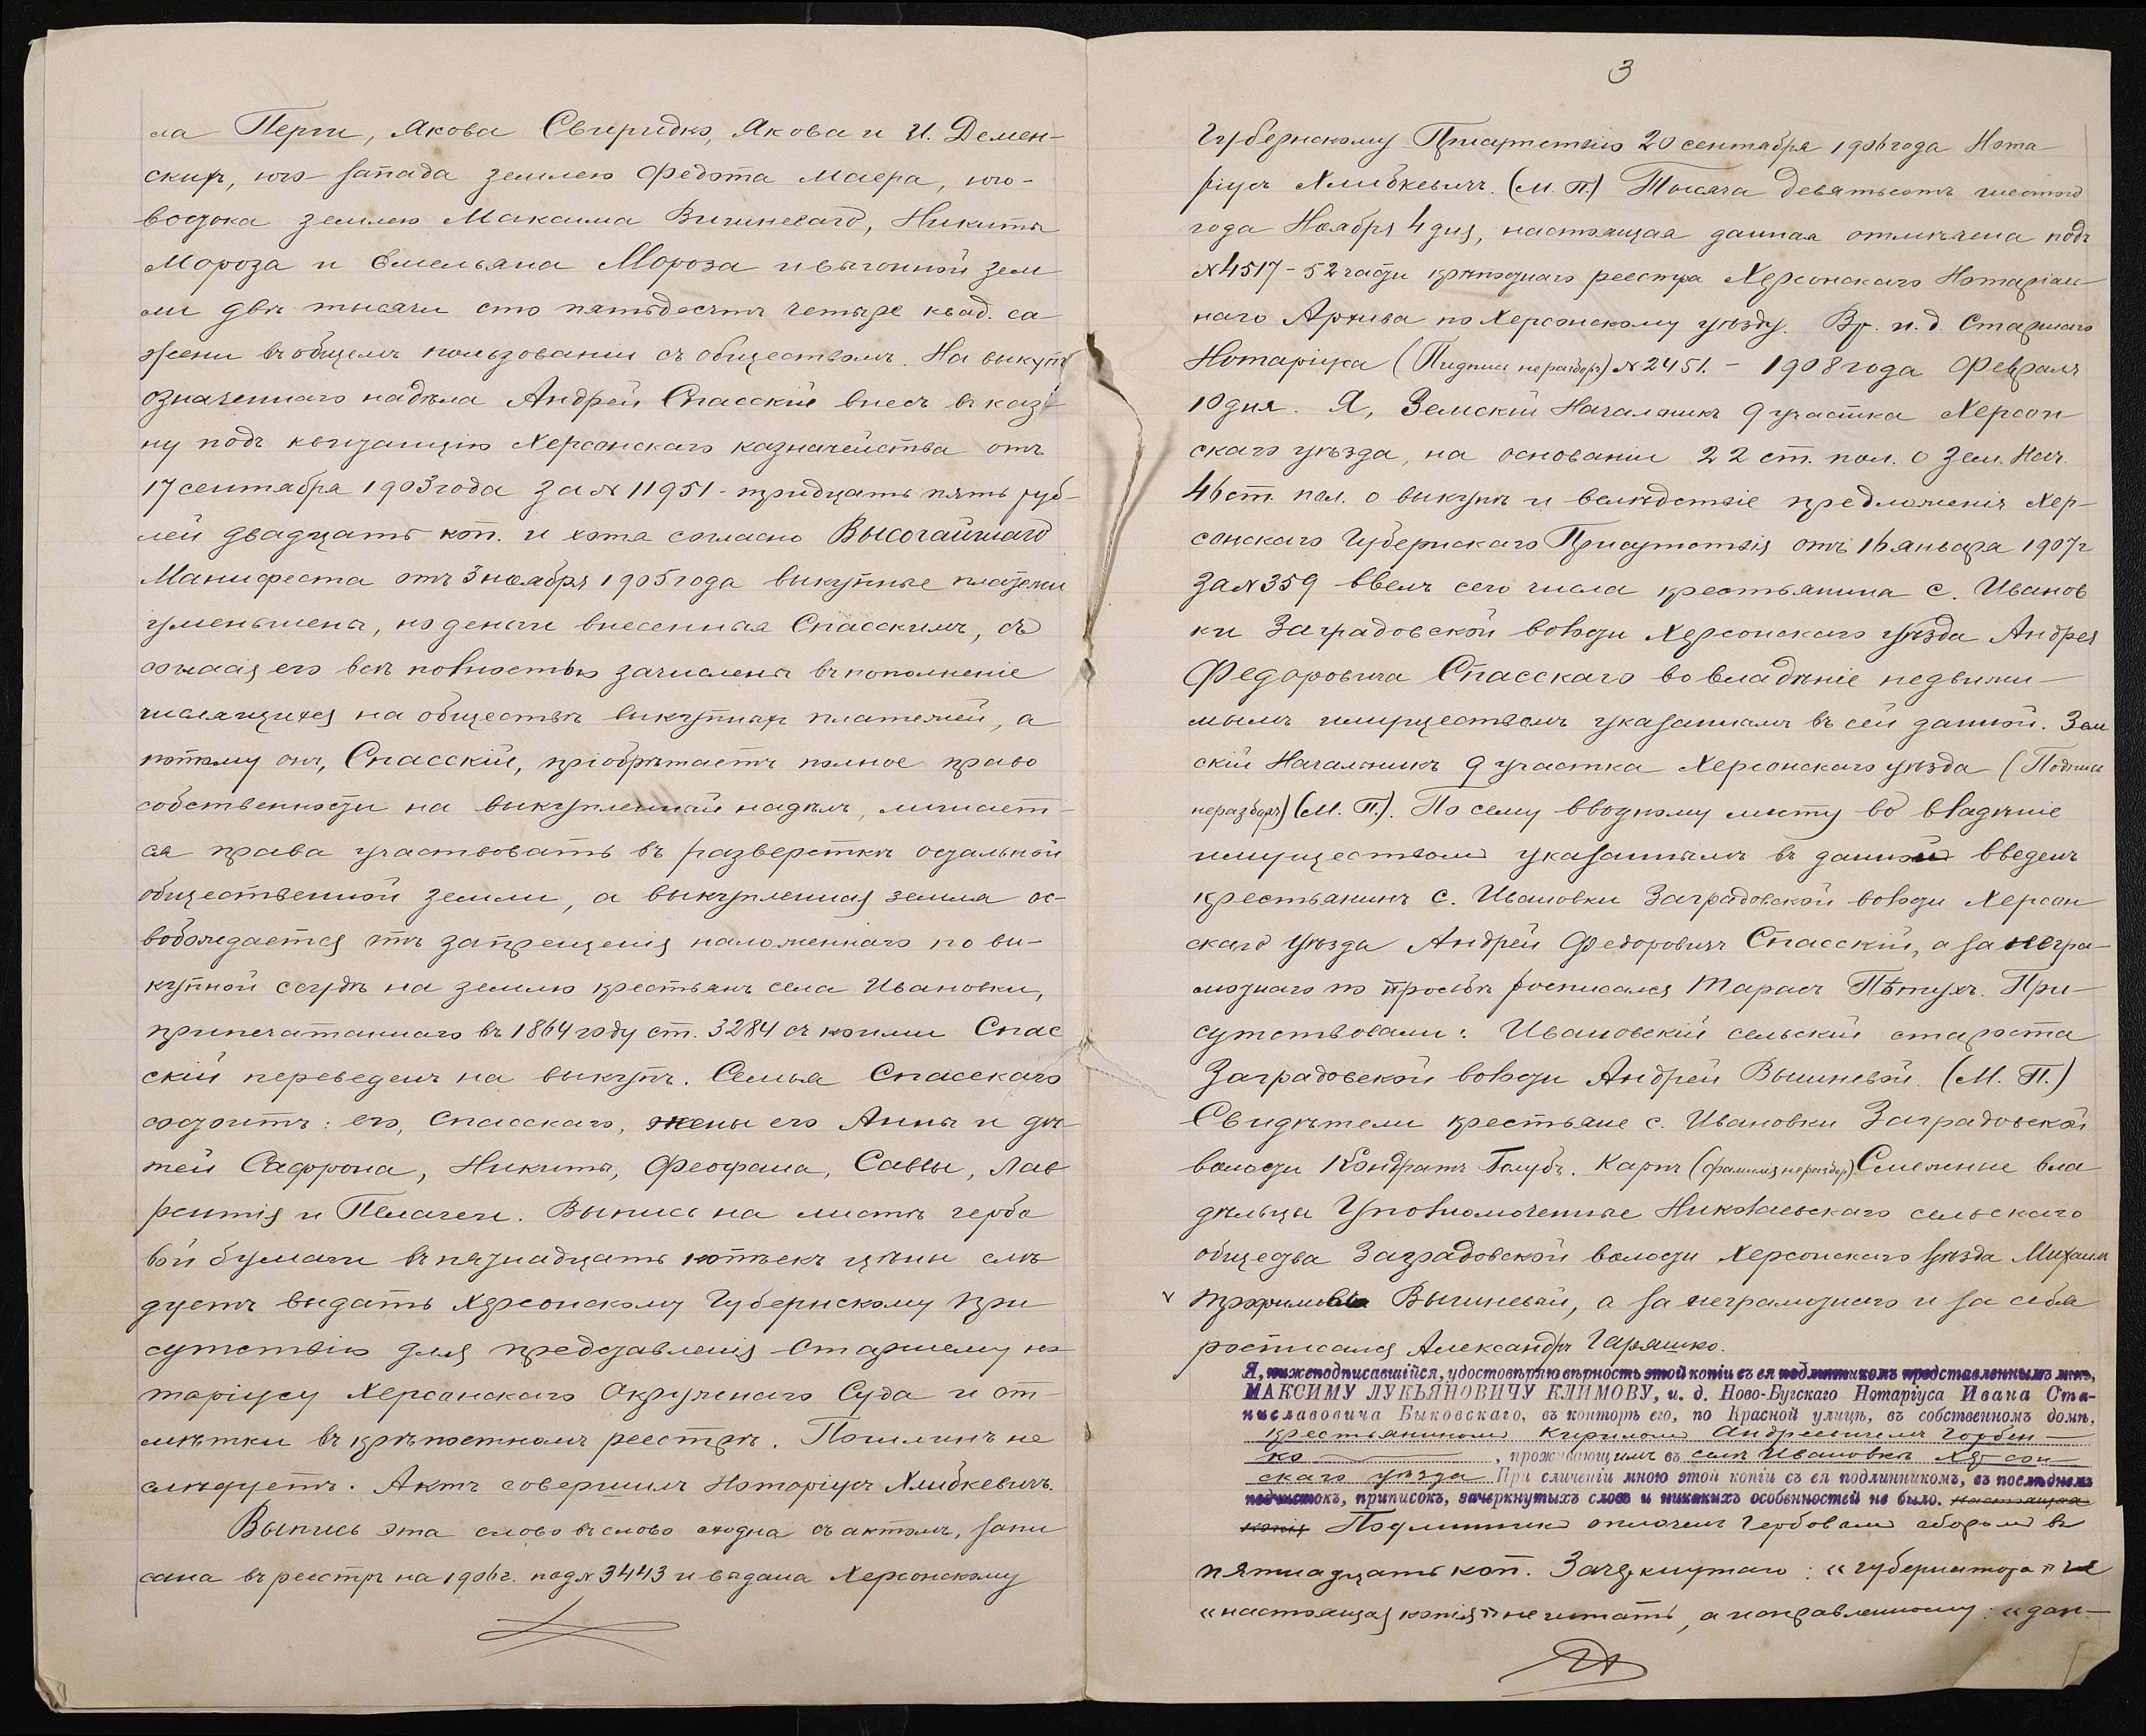 ла Перги, Якова Свиридко, Якова и И. Демен-
скихъ, юго-запада землею Федота Маера, юго-
востока землею Максима Вишневаго, Никиты
Мороза и Емельяна Мороза и выгонной зем
ли двѣ тысячи сто пятьдесятъ четыре квад. са
жени въ общемъ пользованіи съ обществомъ. На выкупъ
означеннаго надѣла Андрей Спасскій внесъ въ каз-
ну подъ квитанцію Херсонскаго казначейства отъ
17 сентября 1903 года за № 11951 - тридцать пять руб-
лей двадцать коп. и хотя согласно Высочайшаго
Манифеста отъ 3 ноября 1905 года выкупные платежи
уменьшены, но деньги внесенныя Спасскимъ, съ
согласія его всѣ полностью зачислены въ пополненіе
числящихся на обществѣ выкупныхъ платежей, а
потому онъ, Спасскій, пріобрѣтаетъ полное право
собственности на выкупленный надѣлъ, лишает-
ся права участвовать въ разверсткѣ остальной
общественной земли, а выкупленная земля ос-
вобождается отъ запрещенія наложеннаго по вы-
купной ссудѣ на землю крестьянъ села Ивановки,
припечатаннаго въ 1864 году ст. 3284 съ коими Спас
скій переведенъ на выкупъ. Семья Спасскаго
состоитъ: его, Спасскаго, жены его Анны и дѣ-
тей Сафрона, Никиты, Феофана, Саввы, Лав
рентія и Пелагеи. Выпись на листѣ гербо
вой бумаги въ пятнадцать копѣекъ цѣны слѣ
дуетъ выдать Херсонскому Губернскому При
сутствію для представленія Старшему но
таріусу Херсонскаго Окружнаго Суда и от-
мѣтки въ крѣпостномъ реестрѣ. Пошлинъ не
слѣдуетъ. Актъ совершилъ Нотаріусъ Хлибкевичъ.
Выпись эта слово въ слово сходна съ актомъ, запи
сана въ реестръ на 1906 г. под № 3443 и выдана Херсонскому
3
Губернскому Присутствію 20 сентября 1906 года Нота
ріусъ Хлибкевичъ. (М. П.) Тысяча девятьсотъ шестого
года Ноября 4 дня, настоящая данная отмѣчена подъ
№ 4517 - 52 части крѣпостнаго реестра Херсонскаго Нотаріаль-
наго Архива по Херсонскому уѣзду. Вр. и. д. Старшаго
Нотаріуса (Подпись неразбор) № 2451. - 1908 года Февраля
10 дня. Я, Земскій Начальникъ 9 участка Херсон
скаго уѣзда, на основаніи 22 ст. пол. о Зем. Нач.
46 ст. пол. о выкупѣ и вслѣдствіе предложенія Хер-
сонскаго Губернскаго Присутствія отъ 16 января 1907 г
за № 359 ввелъ сего числа крестьянина с. Иванов
ки Заградовской волости Херсонскаго уѣзда Андрея
Федоровича Спасскаго во владѣніе недвижи-
мымъ имуществомъ указаннымъ въ сей данной. Зем
скій Начальникъ 9 участка Херсонскаго уѣзда (Подпись
неразбор) (М. П.). По сему вводному листу во владѣніе
имуществомъ указаннымъ въ данной введенъ
крестьянинъ с. Ивановки Заградовской волости Херсон
скаго уѣзда Андрей Федоровичъ Спасскій, а за негра-
мотнаго по просьбѣ росписался Тарасъ Пѣтухъ. При-
сутствовали: Ивановскій сельскій староста
Заградовской волости Андрей Вышневой. (М. П.)
Свидѣтели крестьяне с. Ивановки Заградовской
волости Кондратъ Голубъ. Карпъ (фамилія неразбор). Смежные вла
дѣльцы Уполномоченные Николаевскаго сельскаго
общества Заградовской волости Херсонскаго уѣзда Михаилъ
Вышневый, а за неграмотнаго и за себя
росписался Александръ Гаряшко.
Я, нижеподписавшійся, удостовѣряю вѣрность этой копіи съ ея подлинникомъ представленнымъ мнѣ,
МАКСИМУ ЛУКЬЯНОВИЧУ КЛИМОВУ, и. д. Ново-Бугскаго Нотаріуса Ивана Ста-
ниславовича Быковскаго, въ конторѣ его, по Красной улицѣ, въ собственномъ домѣ,
крестьяниномъ Кириломъ Андреевичемъ Горбен-
ко, проживающимъ въ селѣ Ивановкѣ Херсон
скаго уѣзда При сличеніи мною этой копіи съ ея подлинникомъ, въ послѣднемъ
подчистокъ, приписокъ, зачеркнутыхъ словъ и никакихъ особенностей не было. настоящая
копія Подлинникъ оплоченъ Гербовымъ сборомъ въ
пятнадцать коп. Зачеркнутаго: „губернатора" и
„настоящая копія" не читать, а исправленному: „дан-